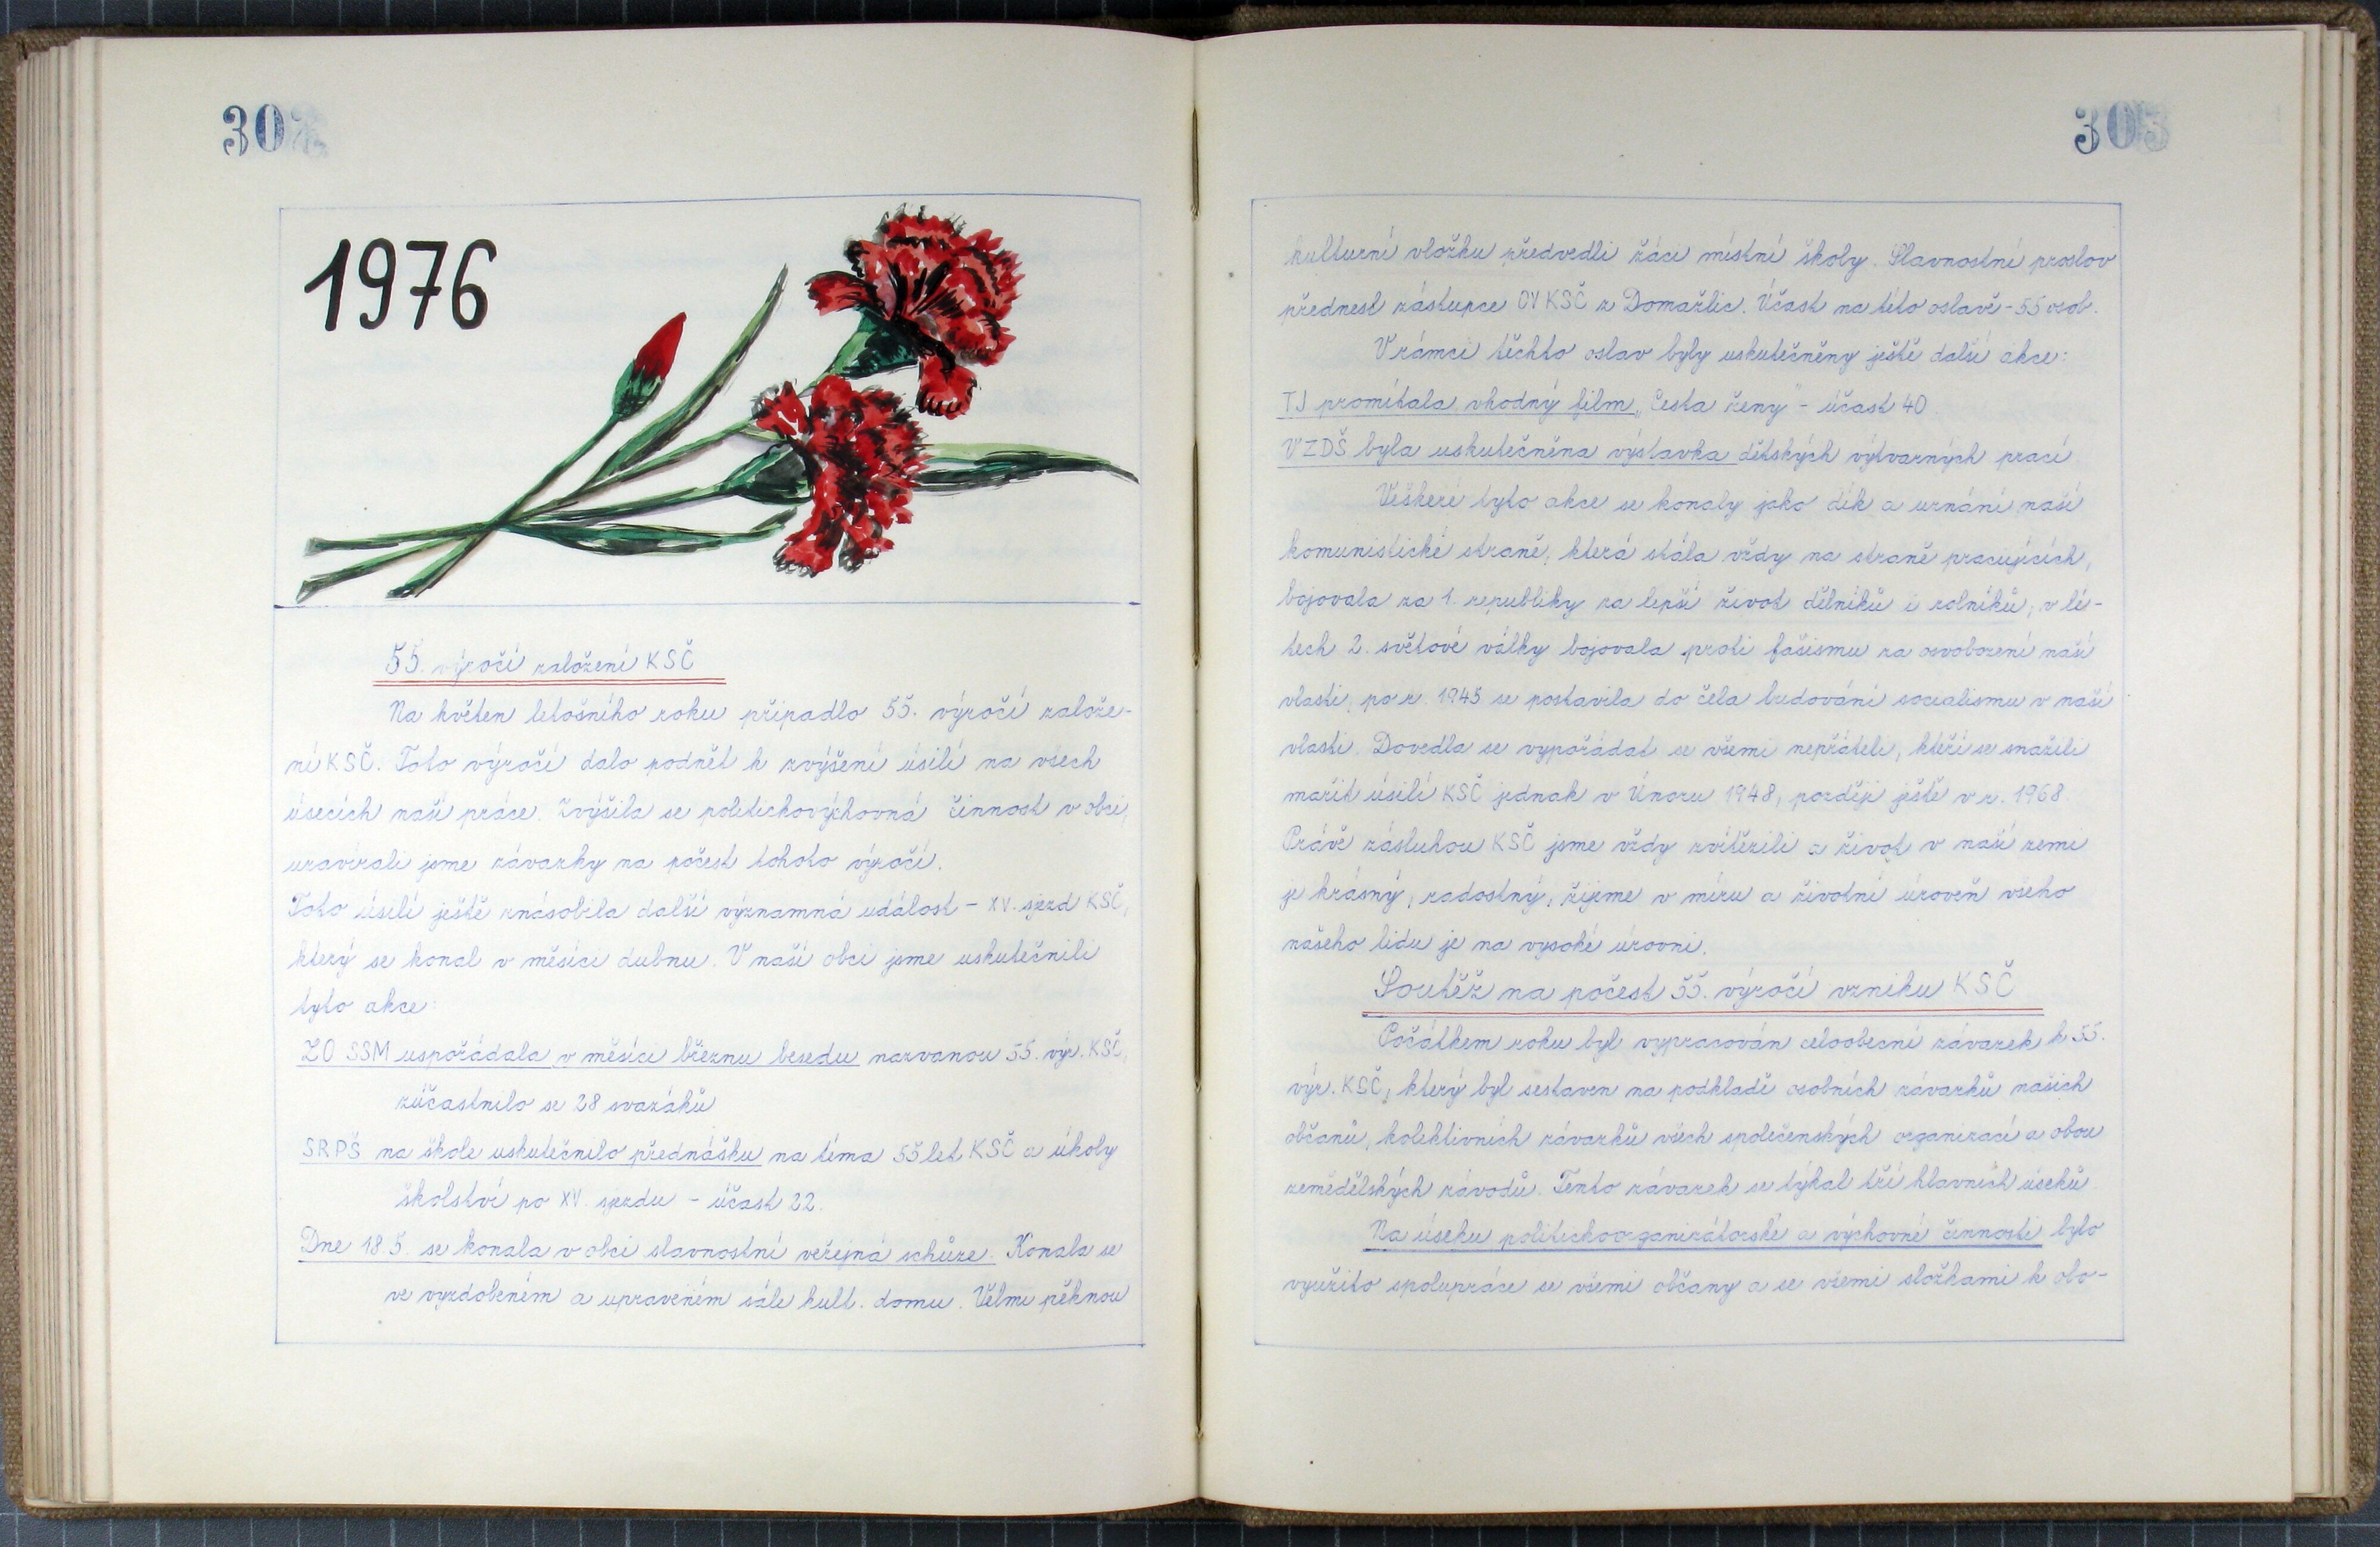 302
1976
55. výročí založení KSČ
Na květen letošního roku připadlo 55. výročí založe-
ní KSČ. Toto výročí dalo podnět k zvýšení úsilí na všech
úsecích naší práce. Zvýšila se politickovýchovná činnost v obci,
uzavírali jsme závazky na počest tohoto výročí.
Toto úsilí ještě znásobila další významná událost - XV. sjezd KSČ,
který se konal v měsíci dubnu. V naší obci jsme uskutečnili
tyto akce:
ZO SSM uspořádala v měsíci březnu besedu nazvanou 55. výr. KSČ,
zúčastnilo se 28 svazáků
SRPŠ na škole uskutečnilo přednášku na téma 55 let KSČ a úkoly
školství po XV. sjezdu - účast 22.
Dne 18.5. se konala v obci slavnostní veřejná schůze. Konala se
ve vyzdobeném a upraveném sále kult. domu. Velmi pěknou
303
kulturní vložku předvedli žáci místní školy. Slavnostní proslov
přednesl zástupce OV KSČ z Domažlic. Účast na této oslavě - 55 osob.
V rámci těchto oslav byly uskutečněny ještě další akce:
TJ promítala vhodný film „Cesta ženy" - účast 40
V ZDŠ byla uskutečněna výstavka dětských výtvarných prací
Veškeré tyto akce se konaly jako dík a uznání naší
komunistické straně, která stála vždy na straně pracujících,
bojovala za 1. republiky za lepší život dělníků i rolníků, v lé-
tech 2. světové války bojovala proti fašismu za osvobození naší
vlasti, po r. 1945 se postavila do čela budování socialismu v naší
vlasti. Dovedla se vypořádat se všemi nepřáteli, kteří se snažili
mařit úsilí KSČ jednak v Únoru 1948, později ještě v r. 1968.
Právě zásluhou KSČ jsme vždy zvítězili a život v naší zemi
je krásný, radostný, žijeme v míru a životní úroveň všeho
našeho lidu je na vysoké úrovni.
Soutěž na počest 55. výročí vzniku KSČ
Počátkem roku byl vypracován celoobecní závazek k 55.
výr. KSČ, který byl sestaven na podkladě osobních závazků našich
občanů, kolektivních závazků všech společenských organizací a obou
zemědělských závodů. Tento závazek se týkal tří hlavních úseků.
Na úseku politickoorganizátorské a výchovné činnosti bylo
využito spolupráce se všemi občany a se všemi složkami k obo-